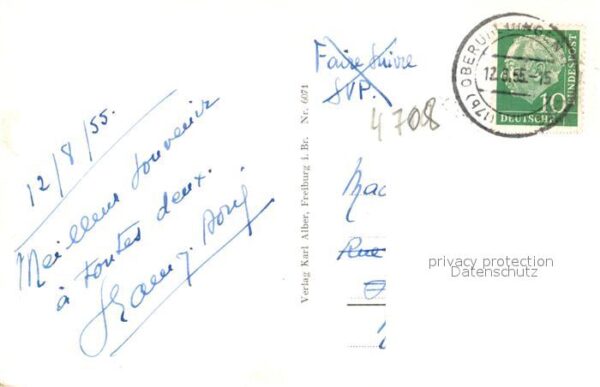 12/8/55.
Meilleur souvenir
à toutes deux.
Verlag Karl Alber, Freiburg i. Br. Nr. 6071
Faire suivre
SVP.
4708
(17b) OBERUHLDINGEN
12.8.55.-15
10
DEUTSCHE
BUNDESPOST
Mad
Rue
privacy protection
Datenschutz